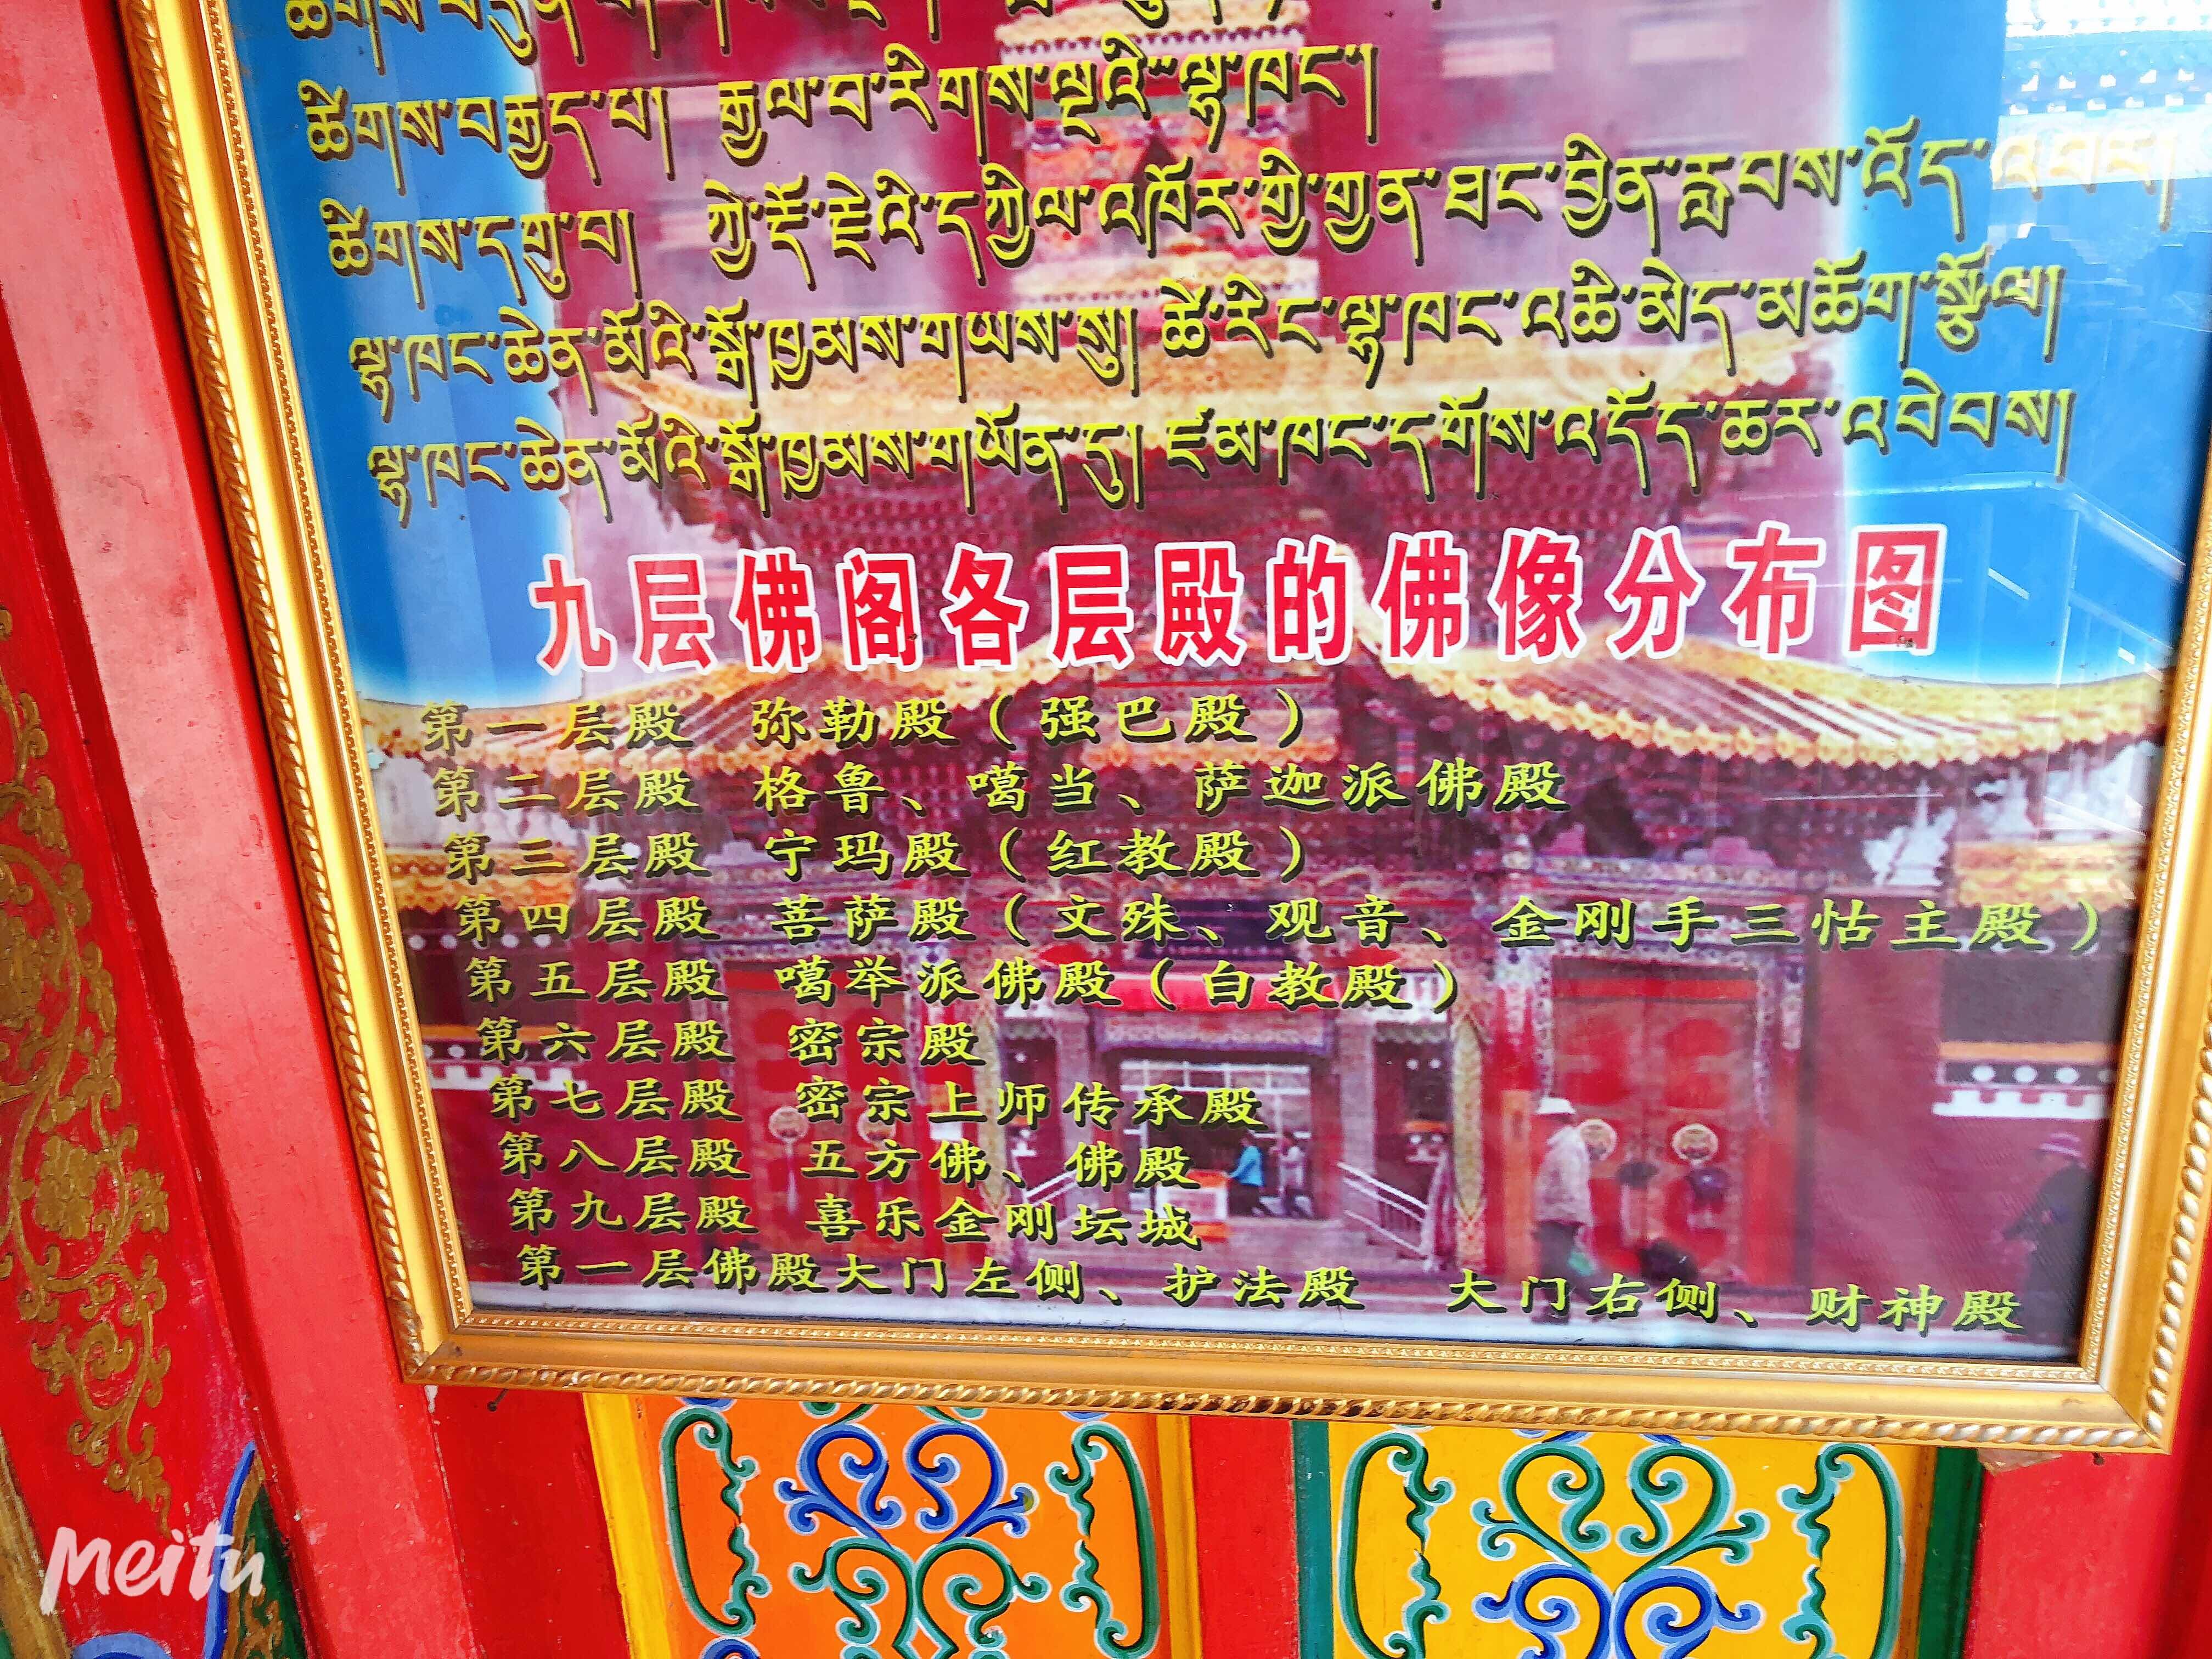 ཚིགས་བརྒྱད་པ། རྒྱལ་བ་རིགས་ལྔའི་ལྷ་ཁང་།
ཚིགས་དགུ་བ། ཀྱེ་རྡོ་རྗེའི་དཀྱིལ་འཁོར་གྱི་གྱན་ཐང་བྱིན་རླབས་འོད་འབར།
ལྷ་ཁང་ཆེན་མོའི་སྒོ་ཁྱམས་གཡས་སུ། ཚེ་རིང་ལྷ་ཁང་འཆི་མེད་མཆོག་སྩོལ།
ལྷ་ཁང་ཆེན་མོའི་སྒོ་ཁྱམས་གཡོན་དུ། ཛམ་ཁང་དགོས་འདོད་ཆར་འབེབས།
九层佛阁各层殿的佛像分布图
第一层殿 弥勒殿（强巴殿）
第二层殿 格鲁、噶当、萨迦派佛殿
第三层殿 宁玛殿（红教殿）
第四层殿 菩萨殿（文殊、观音、金刚手三怙主殿）
第五层殿 噶举派佛殿（白教殿）
第六层殿 密宗殿
第七层殿 密宗上师传承殿
第八层殿 五方佛、佛殿
第九层殿 喜乐金刚坛城
第一层佛殿大门左侧、护法殿 大门右侧、财神殿
Meitu